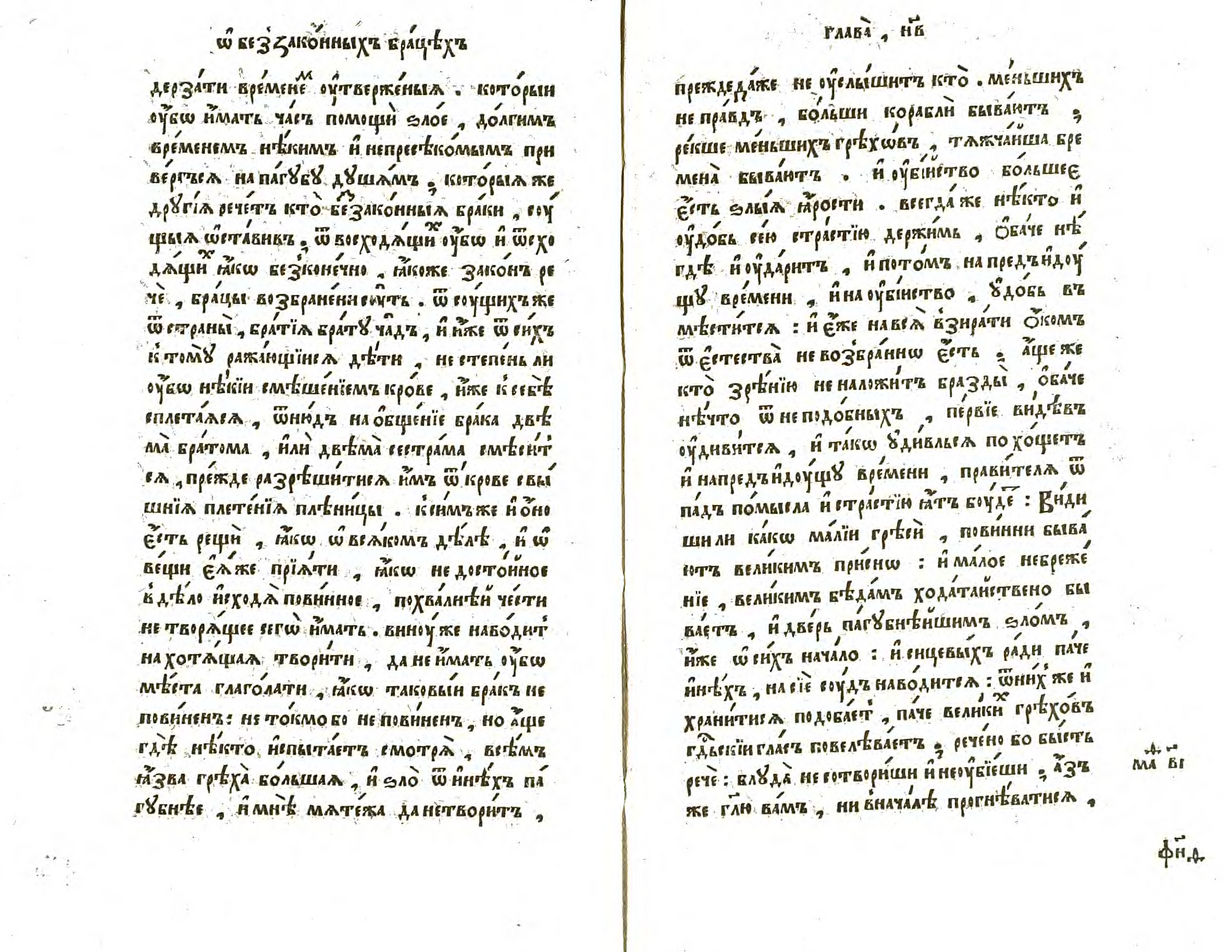 ѿ беззако́нныхъ бра́цѣхъ
дерза́ти вре́менеⷨ ᲂу҆тверже́ныѧ . которы́и
ᲂу҆́бѡ и҆́мать ча́съ по́мощи ѕло́е , до́лгимъ
вре́менемъ нѣ́кимъ и҆ непресѣко́мымъ при
ве́ргъсѧ на па́гꙋбꙋ дꙋша́мъ ; кото́рыѧ же
дрꙋгі́ѧ рече́тъ кто̀ беⷥзако́нныѧ бра́ки , сᲂу́
щыѧ ѡ҆ста́вивъ , ѿ восходѧ́щиⷯ ᲂу҆́бѡ и҆ ѿ схо
дѧ́щиⷯ ꙗ҆́кѡ безконе́чно , ꙗ҆́коже зако́нъ ре
чѐ , бра́цы возбране́ни сᲂу́ть . ѿ сᲂу́щихъ же
ѿ страны̀ , бра́тїѧ бра́тꙋ ча́дъ , и҆ и҆́же ѿ си́хъ
к томꙋ̀ ражда́ющїисѧ дѣ́ти , не степе́нь ли
ᲂу҆́бѡ нѣ́кїи смѣше́нїемъ кро́ве , и҆́же к себѣ̀
сплета́ѧсѧ , ѿню́дъ на ѻ҆бще́нїе бра́ка двѣ
ма̀ бра́тома , и҆лѝ двѣма̀ сестра́ма смѣси́т
сѧ , пре́жде разрѣши́тисѧ и҆̀мъ ѿ кро́ве свы́
шнїѧ плете́нїѧ плѣни́цы . к си́мъ же и҆ ѻ҆но̀
є҆́сть рещѝ , ꙗ҆́кѡ ѡ҆ всѧ́комъ дѣ́лѣ , и҆ ѡ҆
ве́щи є҆ѧ́же прїѧ́ти , ꙗ҆́кѡ не досто́йное
в дѣ́ло и҆сходѧ̀ пови́нное , похвали́ѣй че́сти
не творѧ́щее сегѡ̀ и҆́мать . винᲂу́ же наво́дит
на хотѧ́щаѧ твори́ти , да не и҆́мать ᲂу҆́бѡ
мѣ́ста глаго́лати , ꙗ҆́кѡ таковы́и бра́къ не
пови́ненъ : не то́кмо бо не пови́ненъ , но а҆́ще
гдѣ̀ нѣ́кто и҆спыта́етъ смотрѧ̀ , всѣ́мъ
ꙗ҆́зва грѣха̀ бо́льшаѧ , и҆ ѕло̀ ѿ и҆нѣ́хъ па́
гꙋбнѣе , и҆ мнѣ̀ мѧте́жа да не твори́тъ ,
глава̀ , н҃в
преждеда́же не ᲂу҆слы́шитъ кто̀ . ме́ньшихъ
непра́вдъ , бо́льши кораблѝ быва́ютъ ;
ре́кше ме́ньшихъ грѣхѡ́въ , тѧжча́йша бре
мена̀ быва́ютъ . и҆ ᲂу҆бі́йство бо́льшеє
є҆́сть ѕлы́ѧ ꙗ҆́рости . всегда́ же нѣ́кто и҆
ᲂу҆до́бь се́ю стра́стїю держи́мь , ѻ҆ба́че нѣ́
гдѣ и҆ ᲂу҆да́ритъ , и҆ пото́мъ на предъидᲂу́
щꙋ вре́мени , и҆ на ᲂу҆бі́йство , ᲂу҆до́бь въ
мѣ́ститсѧ : и҆ є҆́же на всѧ̀ взира́ти ѻ҆́комъ
ѿ є҆стества̀ невозбра́ннѡ є҆́сть ; а҆́ще же
кто̀ зрѣ́нїю не наложи́тъ бразды̀ , ѻ҆ба́че
нѣ́что ѿ неподо́бныхъ , пе́рвїе ви́дѣвъ
ᲂу҆диви́тсѧ , и҆ та́кѡ ᲂу҆ди́вльсѧ похо́щетъ
и҆ напредъидᲂу́щꙋ вре́мени , прави́телѧ ѿ
па́дъ по́мысла и҆ стра́стїю ꙗ҆́тъ бᲂу́де : Ви́ди
ши ли ка́кѡ ма́лїи грѣсѝ , пови́нни быва́
ютъ вели́кимъ при́снѡ : и҆ ма́лое небреже́
нїе , вели́кимъ бѣда́мъ хода́тайствено бы
ва́етъ , и҆ две́рь па́гꙋбнѣйшимъ ѕло́мъ ,
и҆́же ѡ҆ си́хъ нача́ло : и҆ сицевы́хъ ра́ди па́че
и҆нѣ́хъ , на сїѐ сᲂу́дъ наво́дитсѧ : ѿ ни́хже и҆
храни́тисѧ подоба́ет , па́че вели́киⷯ грѣхо́въ
гдⷭ҇ьскїи гла́съ повелѣва́етъ ; рече́но бо бы́сть
речѐ : блꙋда̀ не сотвори́ши и҆ не ᲂу҆бїе́ши ; а҆́зъ
же гл҃ю ва́мъ , ни внача́лѣ прогнѣ́ватисѧ ,
ма в҃і
ф҃н҃д